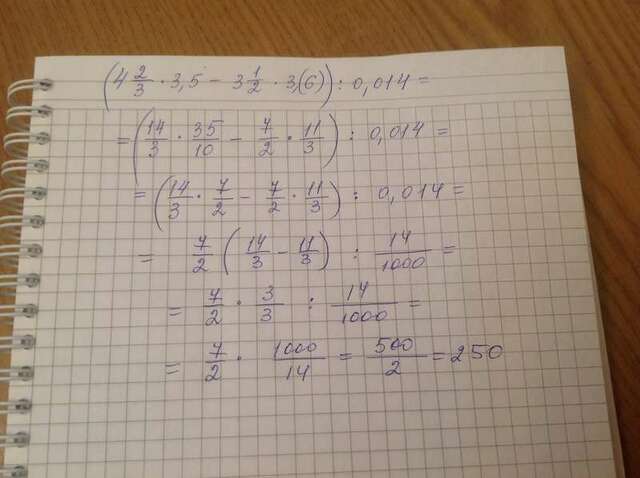 (4 2/3 · 3,5 − 3 1/2 · 3,(6)) : 0,014 =
= (14/3 · 35/10 − 7/2 · 11/3) : 0,014 =
= (14/3 · 7/2 − 7/2 · 11/3) : 0,014 =
= 7/2 (14/3 − 11/3) : 14/1000 =
= 7/2 · 3/3 : 14/1000 =
= 7/2 · 1000/14 = 500/2 = 250